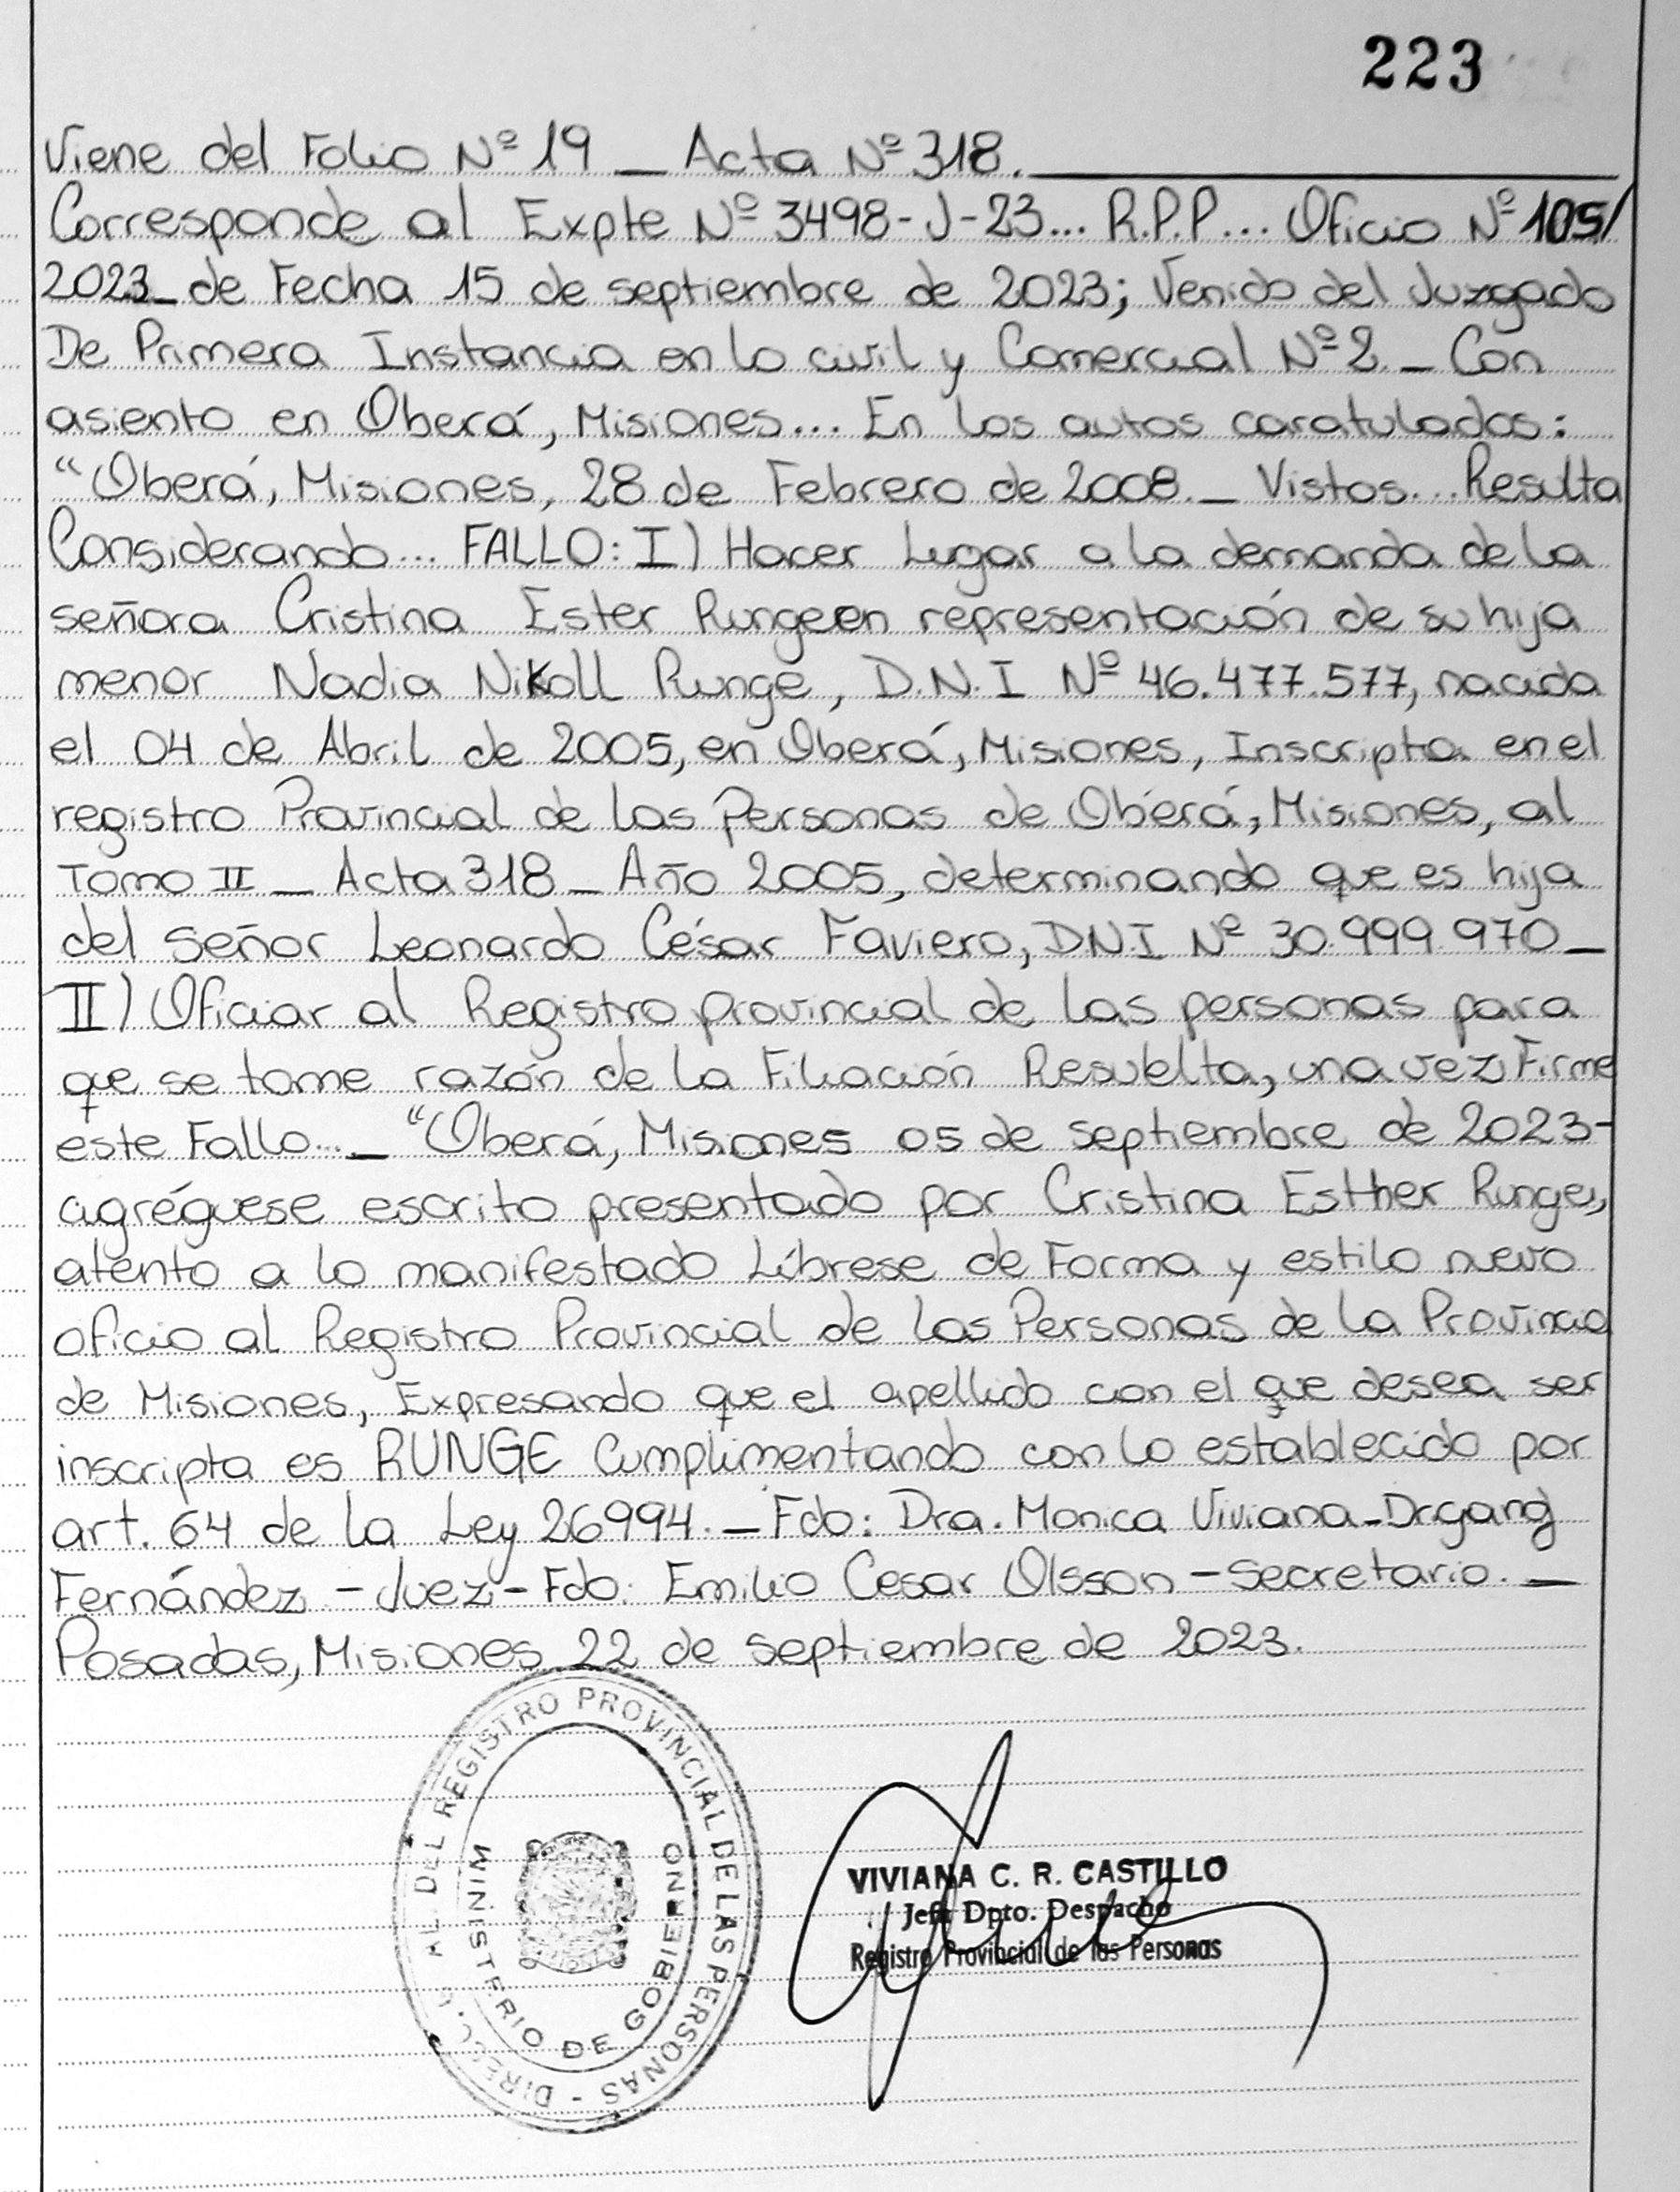 223
Viene del Folio Nº 19 _ Acta Nº 318.
Corresponde al Expte Nº 3498-J-23... R.P.P... Oficio Nº 105/
2023_ de Fecha 15 de septiembre de 2023; Venido del Juzgado
De Primera Instancia en lo civil y Comercial Nº 2._ Con
asiento en Oberá, Misiones... En los autos caratulados:
"Oberá, Misiones, 28 de Febrero de 2008._ Vistos... Resulta
Considerando... FALLO: I) Hacer Lugar a la demanda de la
señora Cristina Ester Runge en representación de su hija
menor Nadia Nikoll Runge, D.N.I Nº 46.477.577, nacida
el 04 de Abril de 2005, en Oberá, Misiones, Inscripta en el
registro Provincial de las Personas de Oberá, Misiones, al
Tomo II _ Acta 318 _ Año 2005, determinando que es hija
del señor Leonardo César Faviero, D.N.I Nº 30.999.970_
II) Oficiar al Registro provincial de las personas para
que se tome razón de la Filiación Resuelta, una vez Firme
este Fallo..._ "Oberá, Misiones 05 de septiembre de 2023-
agréguese escrito presentado por Cristina Esther Runge,
atento a lo manifestado Líbrese de Forma y estilo nuevo
oficio al Registro Provincial de las Personas de la Provincia
de Misiones, Expresando que el apellido con el que desea ser
inscripta es RUNGE Cumplimentando con lo establecido por
art. 64 de la Ley 26994._ Fdo: Dra. Monica Viviana _ Drgang
Fernández - Juez - Fdo: Emilio Cesar Olsson - Secretario._
Posadas, Misiones 22 de septiembre de 2023.
DEL REGISTRO PROVINCIAL DE LAS PERSONAS -
MINISTERIO DE GOBIERNO
VIVIANA C. R. CASTILLO
Jefa Dpto. Despacho
Registro Provincial de las Personas